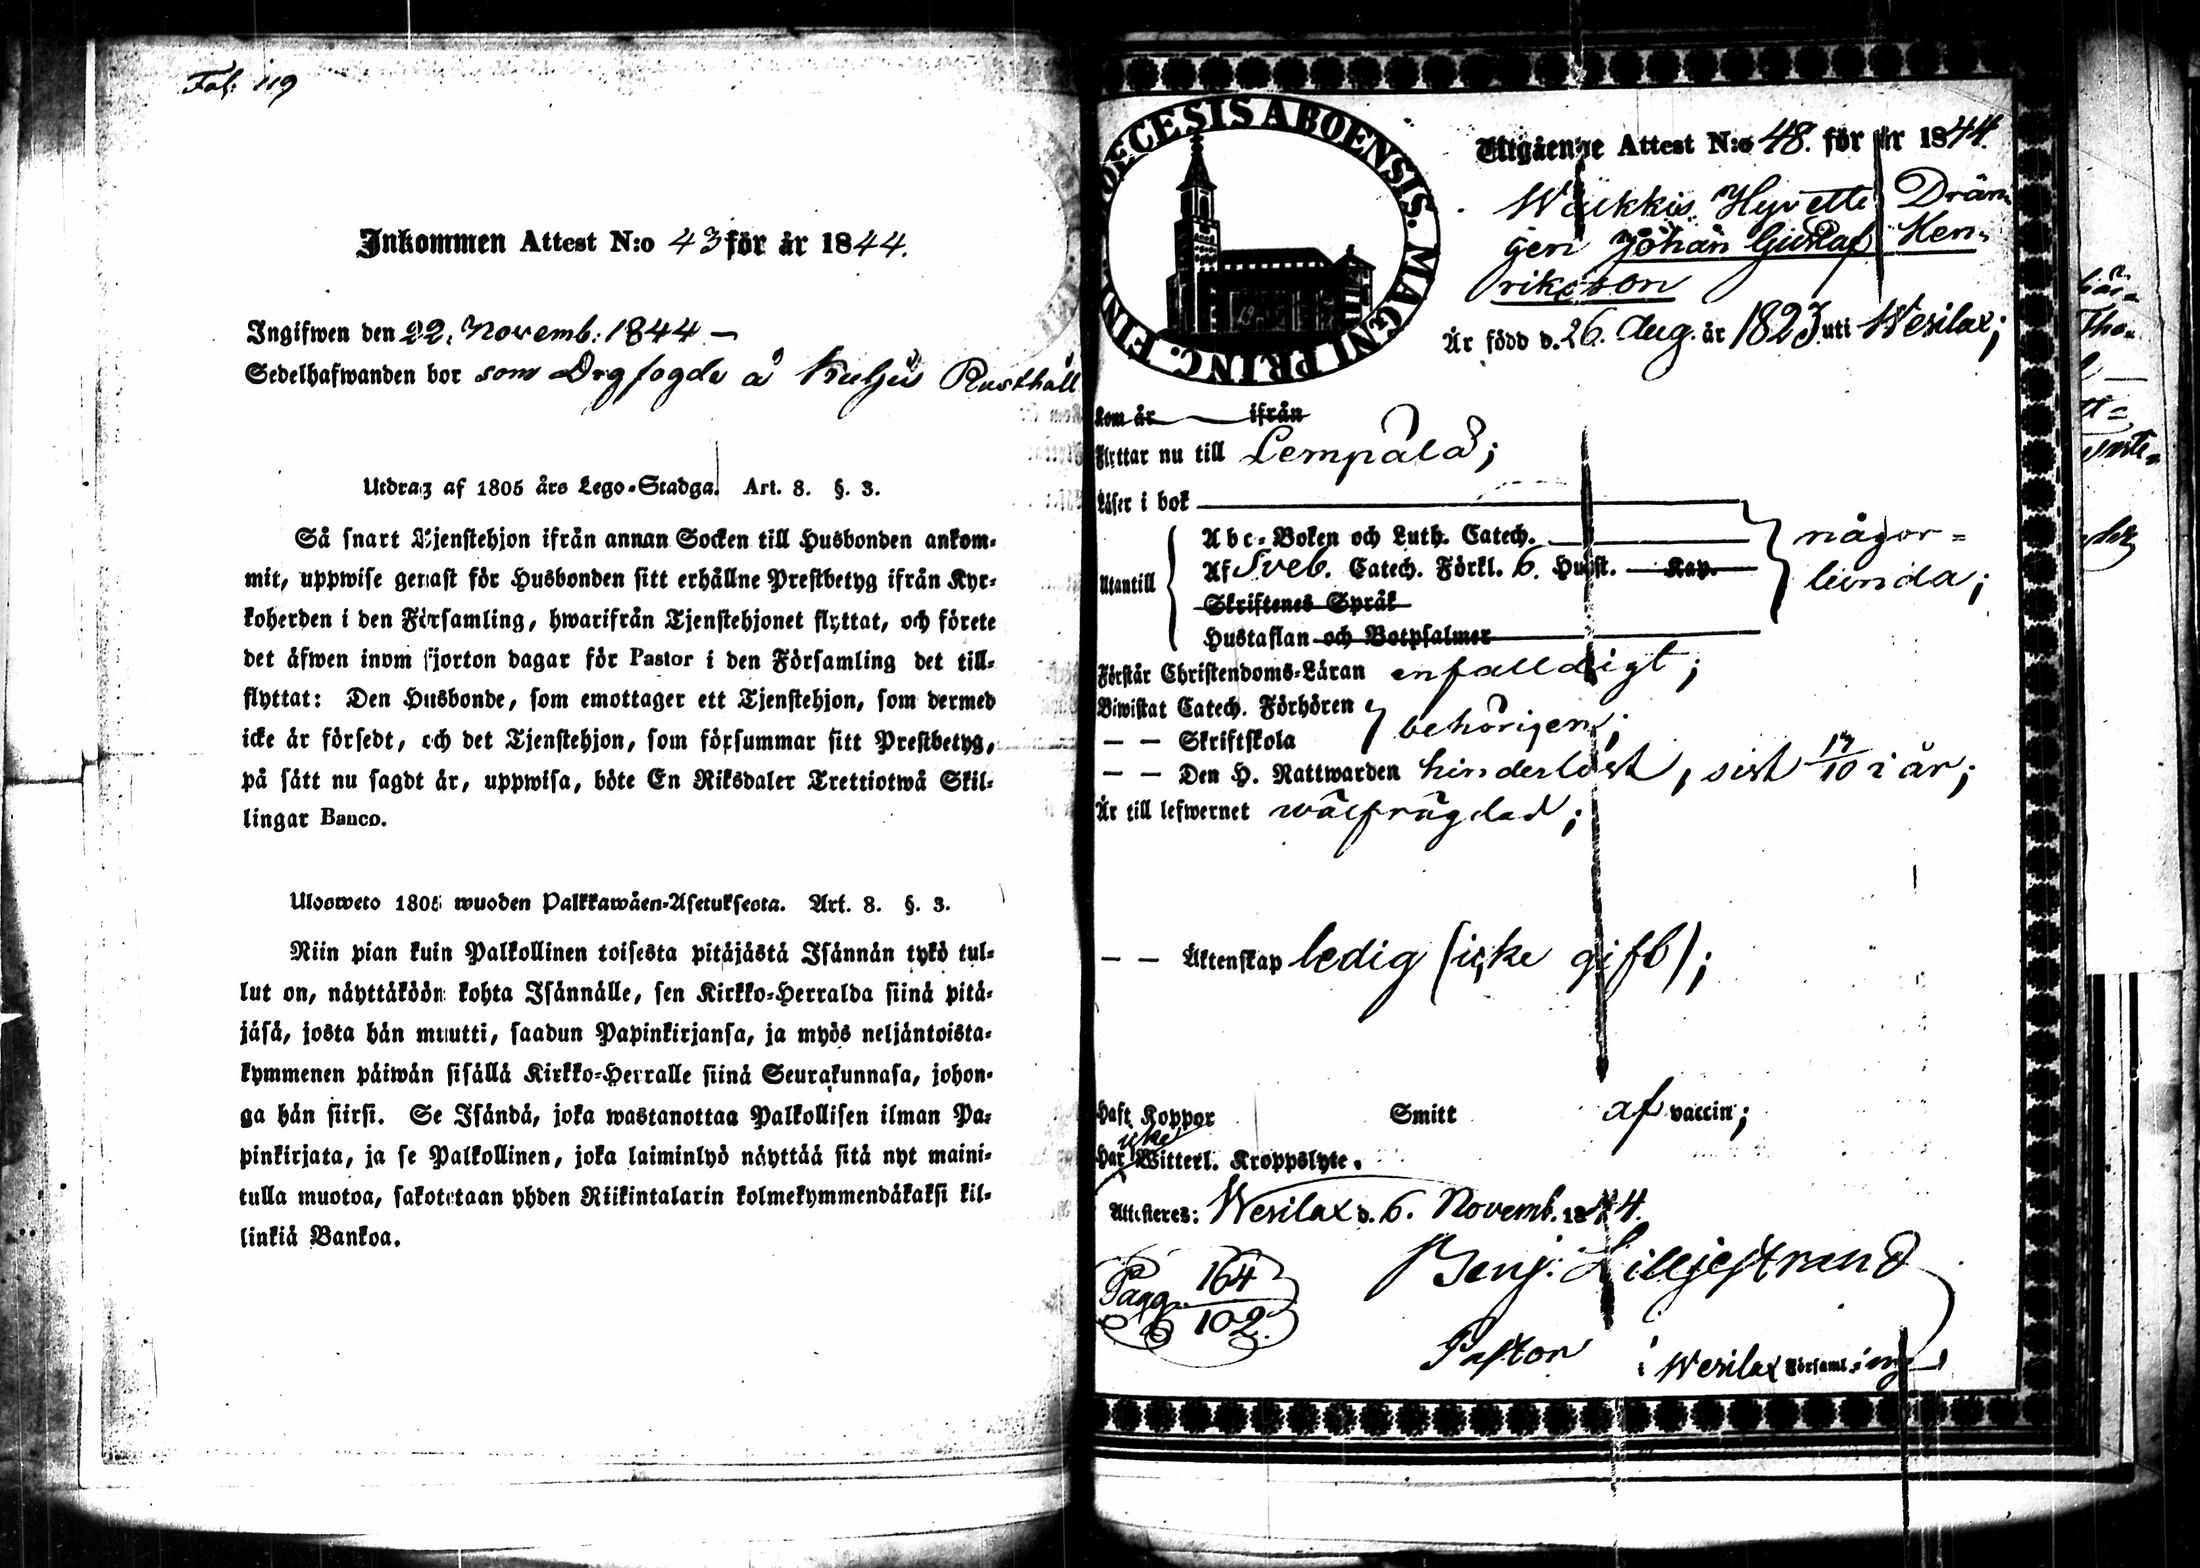 Fol: 119
Inkommen Attest N:o 43 för år 1844.
Ingifwen den 22. Novemb: 1844 —
Sedelhafwanden bor som Drgfogde å Kuljus Rusthåll
Utdrag af 1805 års Lego-Stadga. Art. 8. §. 3.
Så snart Tjenstehjon ifrån annan Socken till Husbonden ankom-
mit, uppwise genast för Husbonden sitt erhållne Prestbetyg ifrån Kyr-
koherden i den Församling, hwarifrån Tjenstehjonet flyttat, och förete
det äfwen inom fjorton dagar för Pastor i den Församling det till-
flyttat: Den Husbonde, som emottager ett Tjenstehjon, som dermed
icke är försedt, och det Tjenstehjon, som försummar sitt Prestbetyg,
på sätt nu sagdt är, uppwisa, böte En Riksdaler Trettiotwå Skil-
lingar Banco.
Ulosweto 1805 wuoden Palkkawäen-Asetuksesta. Art. 8. §. 3.
Niin pian kuin Palkollinen toisesta pitäjästä Isännän tykö tul-
lut on, näyttäköön kohta Isännälle, sen Kirkko-Herralda siinä pitä-
jäsä, josta hän muutti, saadun Papinkirjansa, ja myös neljäntoista-
kymmenen päiwän sisällä Kirkko-Herralle siinä Seurakunnasa, johon-
ga hän siirsi. Se Isändä, joka wastanottaa Palkollisen ilman Pa-
pinkirjata, ja se Palkollinen, joka laiminlyö näyttää sitä nyt maini-
tulla muotoa, sakotetaan yhden Riikintalarin kolmekymmendäkaksi kil-
linkiä Bankoa.
DIOECESIS ABOENSIS. MAGNI PRINC. FINL.
Utgående Attest N:o 48. för år 1844.
Waikkis Hyvette Drän-
gen Johan Gustaf Hen-
riksson
Är född d. 26. Aug. år 1823 uti Wesilax;
Kom år ifrån
Flyttar nu till Lempälä;
Läser i bok
Utantill
Abc-Boken och Luth. Catech.
Af Sveb. Catech. Förkl. 6. Hufst. Kap.
Skriftenes Språk
Hustaflan och Botpsalmer
någor=
lunda;
Förstår Christendoms-Läran enfalldigt;
Biwistat Catech. Förhören
— — Skriftskola
behörigen;
— — Den H. Nattwarden hinderlöst, sist 17/10 i år;
Är till lefwernet wälfrägdad;
— — Äktenskap ledig (icke gift);
Haft Koppor Smitt af vaccin;
icke
Har Witterl. Kroppslyte.
Attesteres: Wesilax d. 6. Novemb. 1844.
Pagg. 164
102.
Benj: Lilljestrand
Pastor i Wesilax Församling,